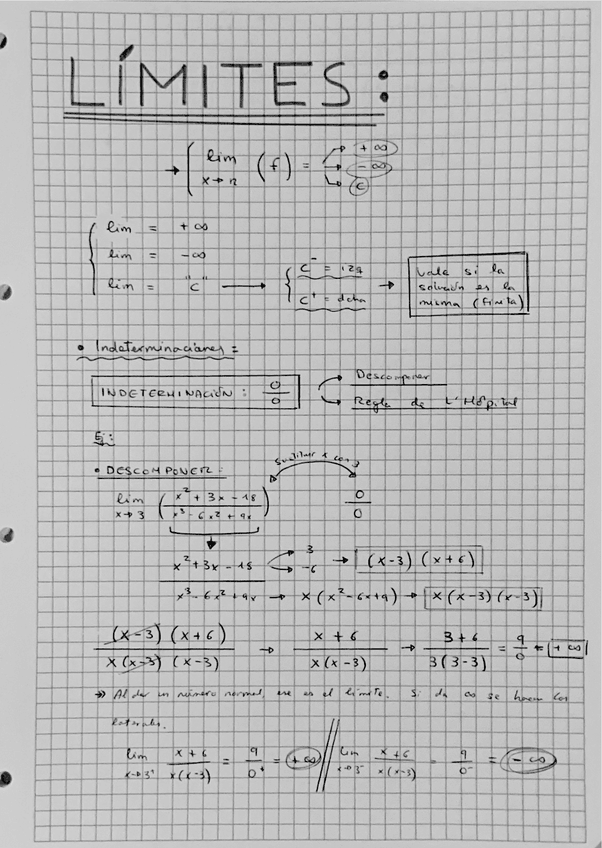 LÍMITES:
→ { lim x→n (f) = → +∞ → -∞ → c
lim = +∞
lim = -∞
lim = "c" → { c⁻ = izq c⁺ = dcha → Vale si la solución es la misma (finita)
• Indeterminaciones:
INDETERMINACIÓN: 0/0 → Descomponer → Regla de L'Hôpital
Ej:
• DESCOMPONER: Sustituir x con 3
lim x→3 (x² + 3x - 18 / x³ - 6x² + 9x) 0/0
x² + 3x - 18 → 3 → -6 → (x-3) (x+6)
x³ - 6x² + 9x → x(x² - 6x + 9) → x(x-3)(x-3)
(x-3)(x+6) / x(x-3)(x-3) → x+6 / x(x-3) → 3+6 / 3(3-3) = 9/0 = +∞
→ Al dar un número normal, ese es el límite. Si da ∞ se hacen los
laterales.
lim x→3⁺ x+6 / x(x-3) = 9/0⁺ = +∞ // lim x→3⁻ x+6 / x(x-3) = 9/0⁻ = -∞